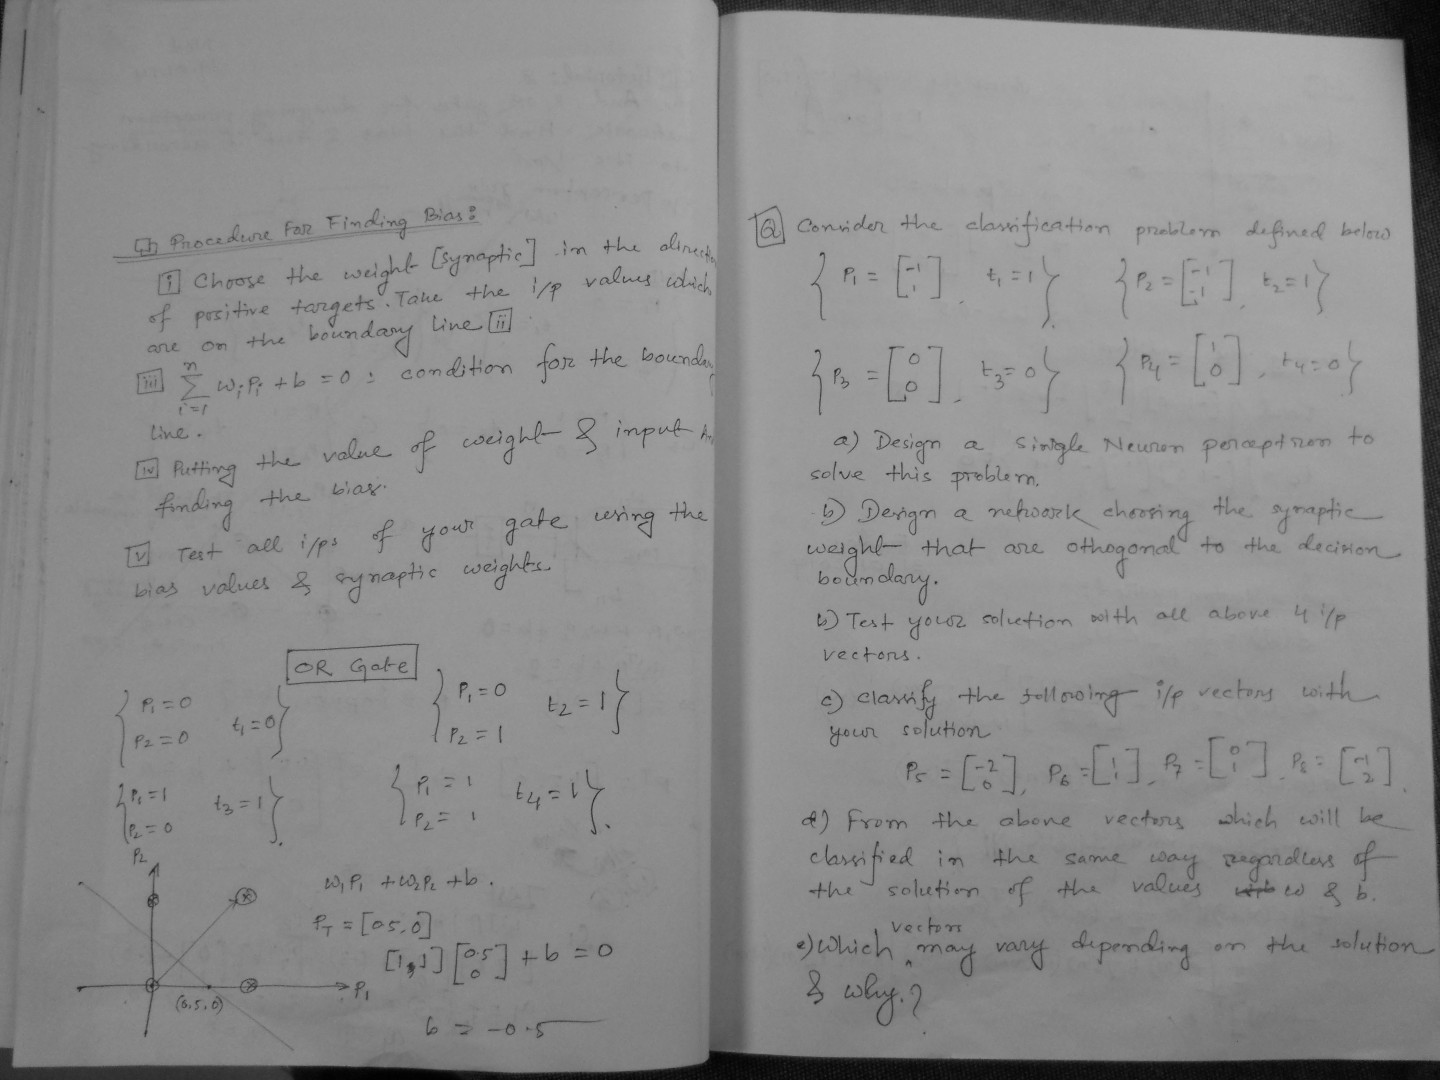 Procedure For Finding Bias:
[i] Choose the weight [synaptic] in the direction
of positive targets. Take the i/p values which
are on the boundary line [ii]
[iii] n∑i=1 wiPi + b = 0 : condition for the boundary
line.
[iv] Putting the value of weight & input
finding the bias.
[v] Test all i/ps of your gate using the
bias values & synaptic weights.
OR Gate
{ P1 = 0 P2 = 0 t1 = 0 } { P1 = 0 P2 = 1 t2 = 1 }
{ P1 = 1 P2 = 0 t3 = 1 } { P1 = 1 P2 = 1 t4 = 1 }.
P2
w1P1 + w2P2 + b.
PT = [0.5, 0]
[1, 1] [0.5 0] + b = 0
P1
(0.5, 0)
b = -0.5
Q Consider the classification problem defined below
{ P1 = [-1 1], t1 = 1 } { P2 = [-1 -1], t2 = 1 }
{ P3 = [0 0], t3 = 0 } { P4 = [1 0], t4 = 0 }
a) Design a single Neuron perceptron to
solve this problem.
b) Design a network choosing the synaptic
weight that are othogonal to the decision
boundary.
b) Test your solution with all above 4 i/p
vectors.
c) classify the following i/p vectors with
your solution
P5 = [-2 0], P6 = [1 1], P7 = [0 1], P8 = [-1 2].
d) From the above vectors which will be
classified in the same way regardless of
the solution of the values w & b.
e) Which vectors may vary depending on the solution
& why.?